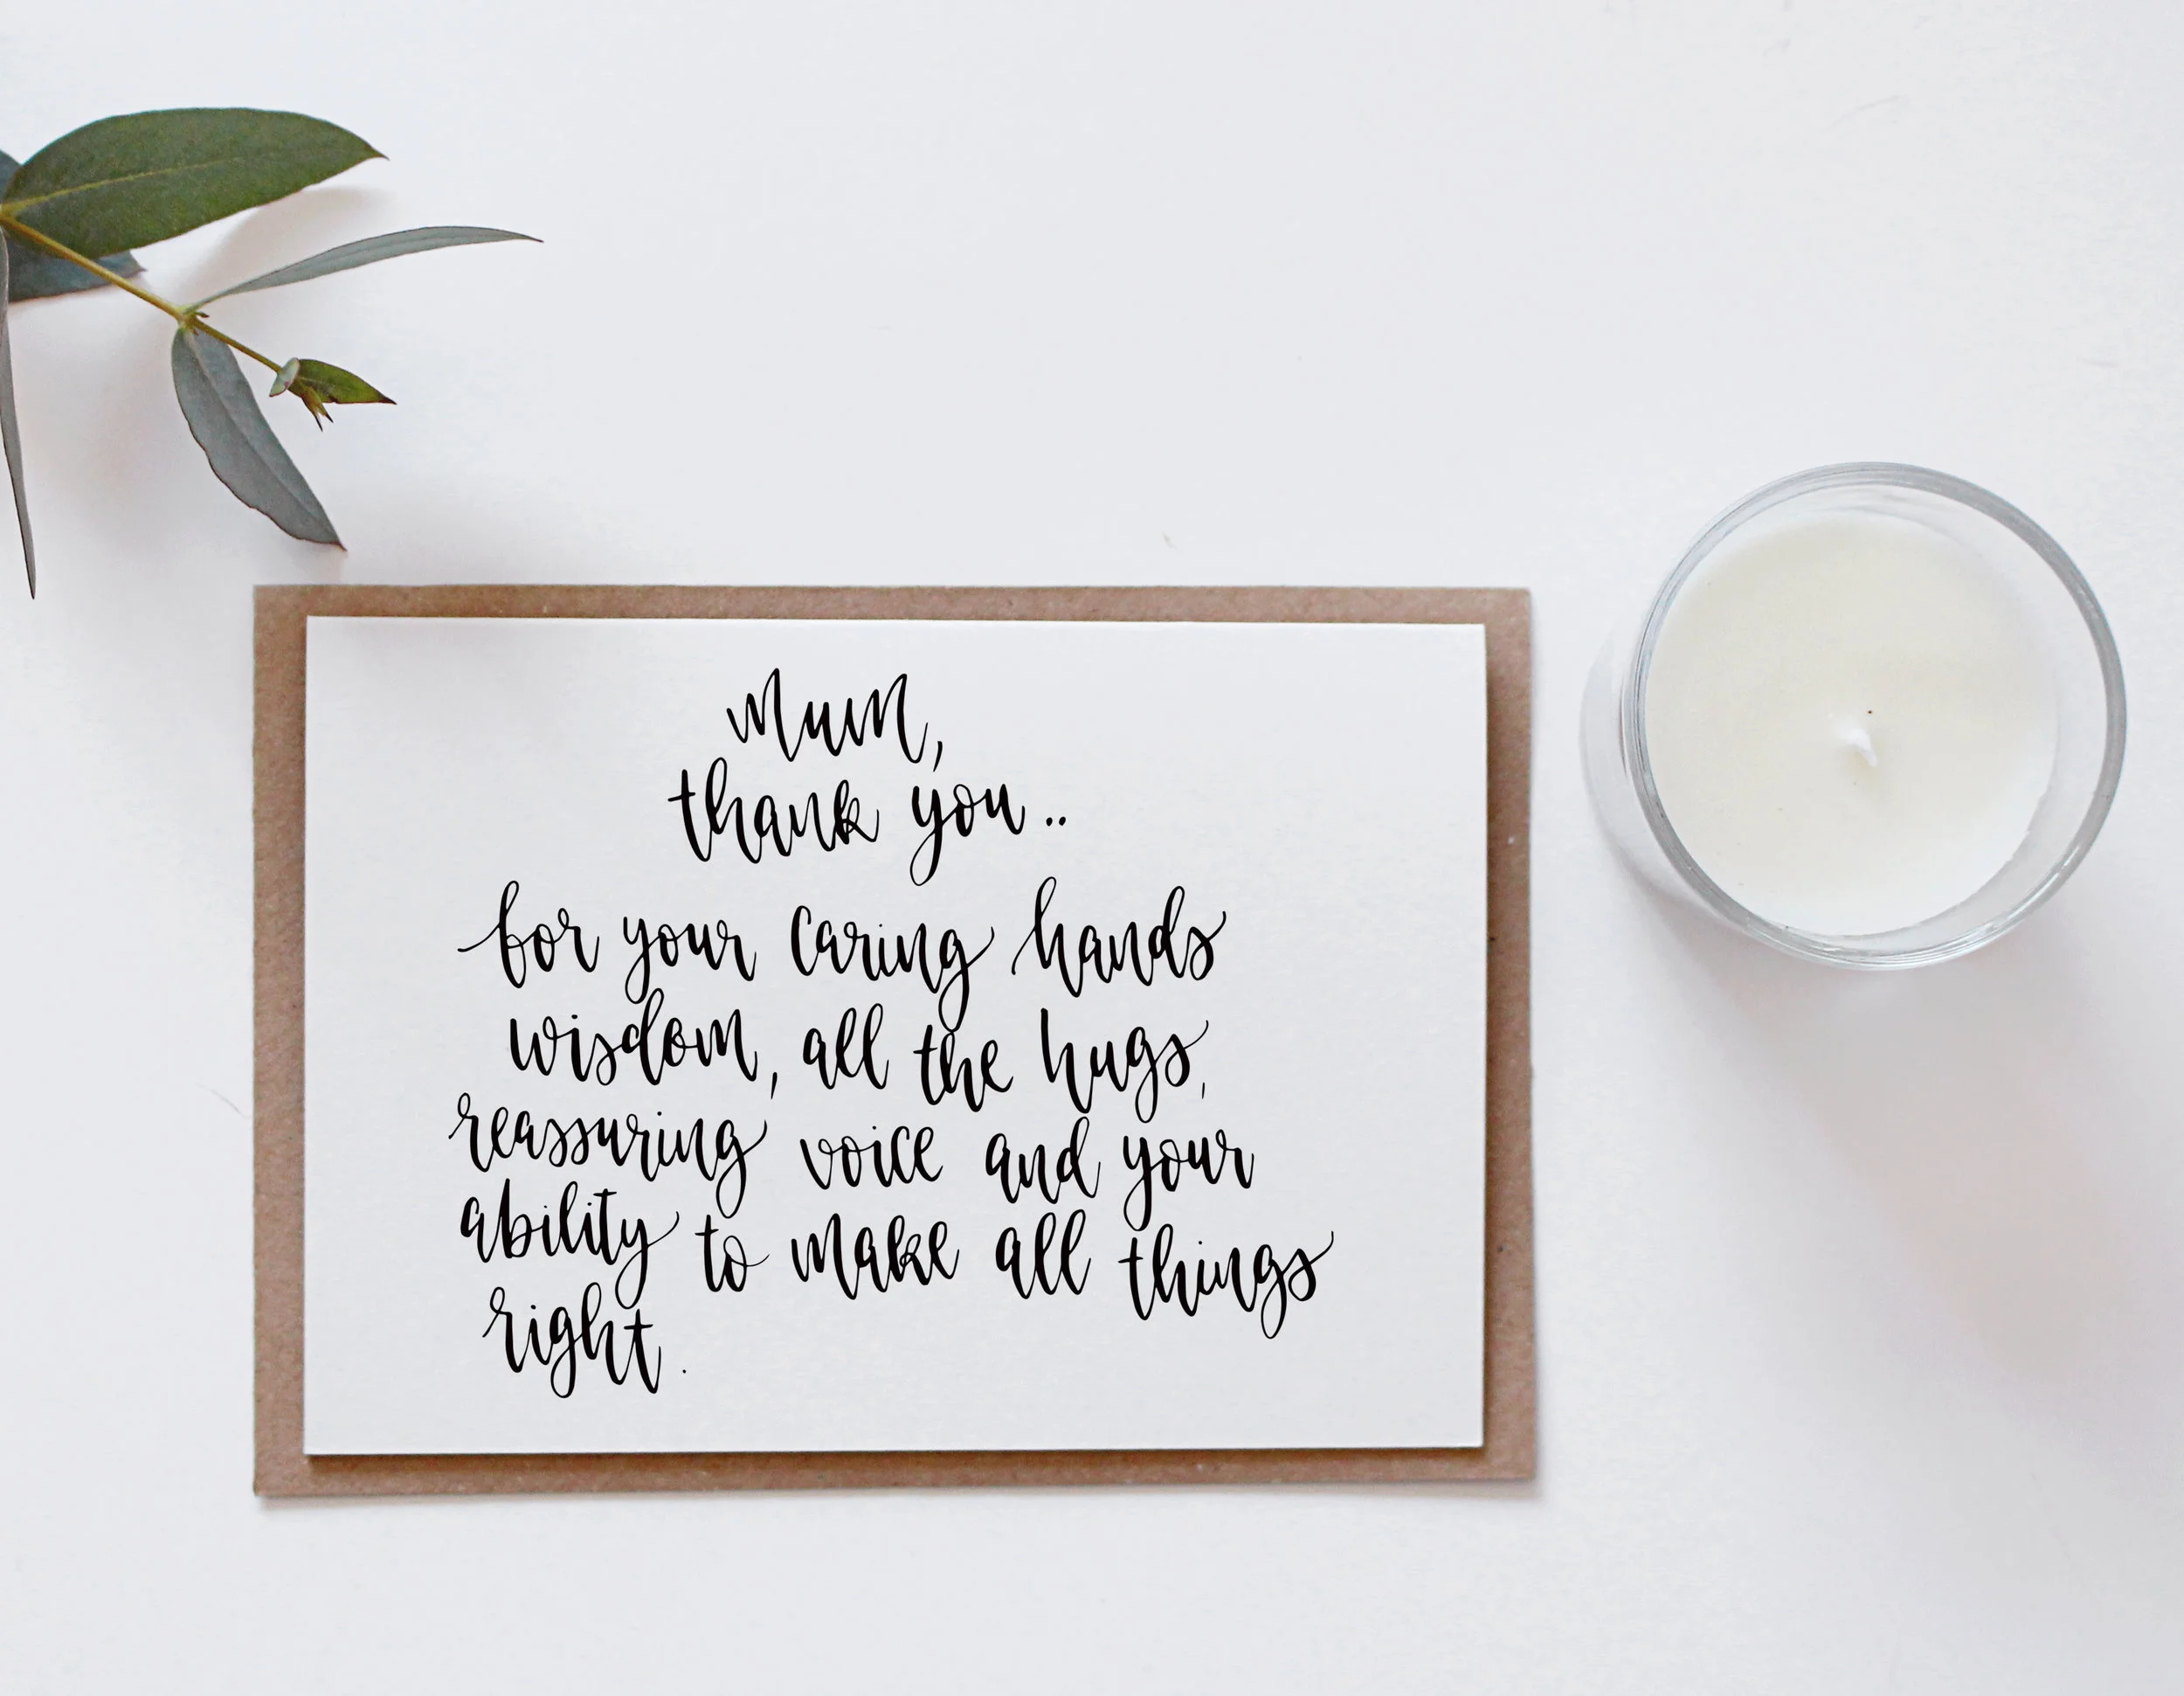 Mum,
thank you..
for your caring hands
wisdom, all the hugs,
reassuring voice and your
ability to make all things
right.